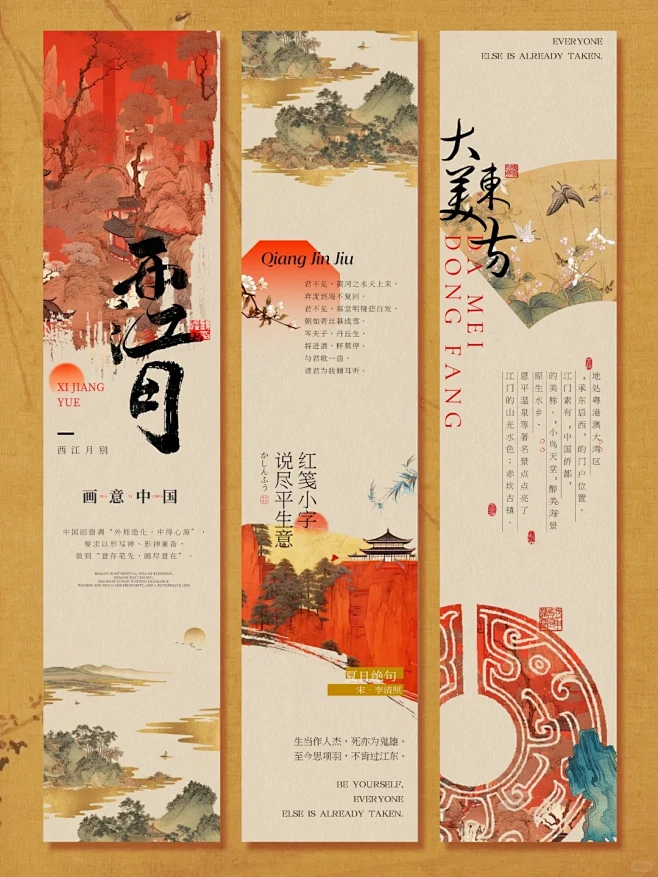 西江月
XI JIANG
YUE
西江月别
画意中国
中国画强调“外师造化,中得心源”,
要求以形写神、形神兼备,
做到“意存笔先,画尽意在”。
Qiang Jin Jiu
君不见,黄河之水天上来,
奔流到海不复回。
君不见,高堂明镜悲白发,
朝如青丝暮成雪。
岑夫子,丹丘生,
将进酒,杯莫停。
与君歌一曲,
请君为我倾耳听。
红笺小字
说尽平生意
かしんふう
夏日绝句
宋·李清照
生当作人杰,死亦为鬼雄。
至今思项羽,不肯过江东。
BE YOURSELF,
EVERYONE
ELSE IS ALREADY TAKEN.
EVERYONE
ELSE IS ALREADY TAKEN.
大美
東方
DA MEI
DONG FANG
地处粤港澳大湾区
“承东启西”的门户位置。
江门素有“中国侨都”
的美称,“小鸟天堂”醉美海景
原生水乡,
恩平温泉等著名景点点亮了
江门的山光水色;赤坎古镇、